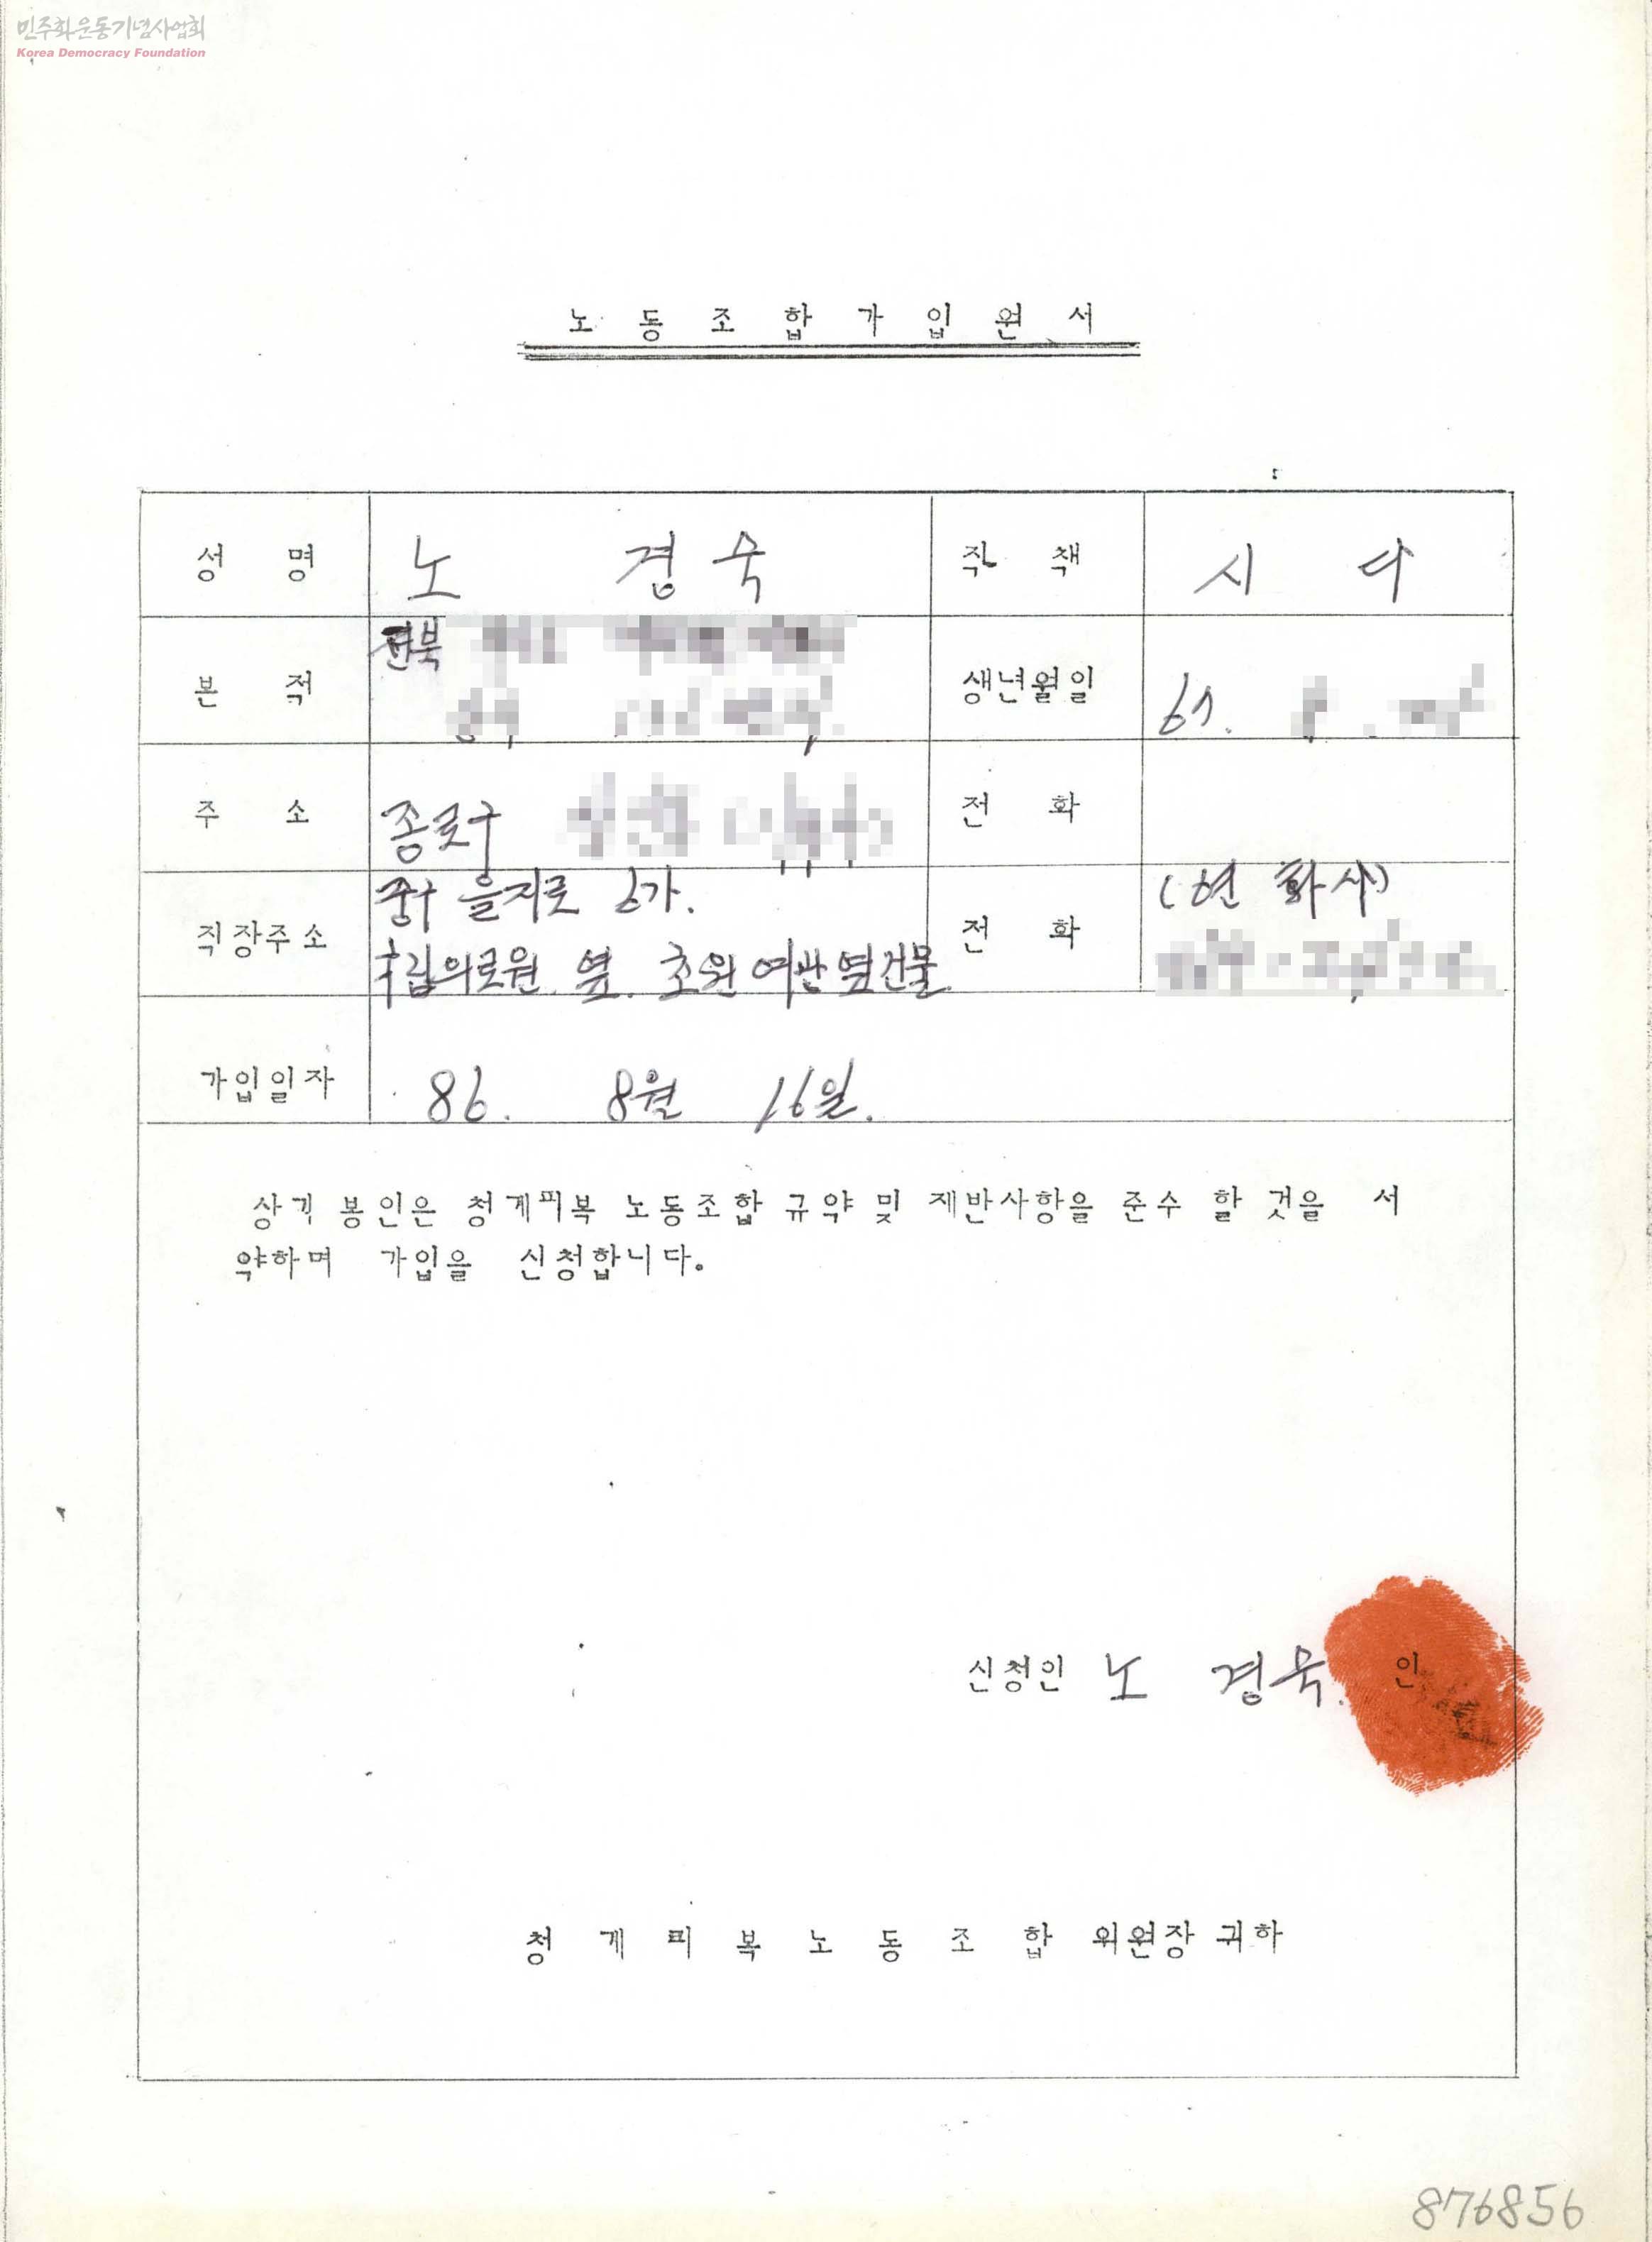 민주화운동기념사업회
Korea Democracy Foundation
노동조합가입원서
성 명 노 경숙 직 책 시 다
본 적 전북 생년월일 67.
주 소 종로구 전 화
직장주소 중구 을지로 6가. 전 화 (현 화사)
국립의료원 옆. 초원 여관 옆건물
가입일자 86. 8월 16일.
상기 본인은 청계피복 노동조합 규약 및 제반사항을 준수 할 것을 서
약하며 가입을 신청합니다.
신청인 노 경숙. 인
청계피복노동조합 위원장 귀하
876856